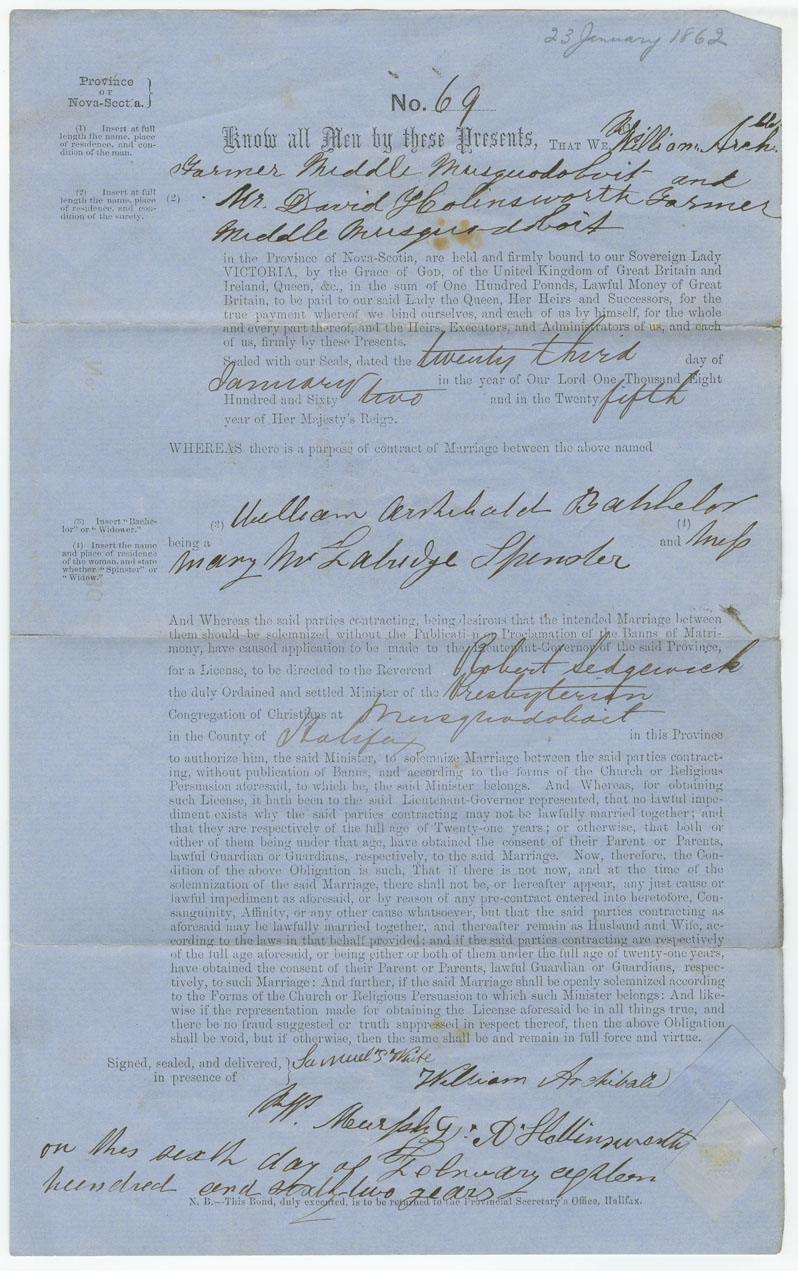 23 January 1862
Province
OF
Nova-Scotia.
No. 69
(1) Insert at full
length the name, place
of residence, and con-
dition of the man.
Know all Men by these Presents, THAT WE, William Archibald
Farmer Middle Musquodoboit and
(2) Insert at full
length the name, place
of residence, and con-
dition of the surety.
(2) Mr. David Holinsworth Farmer
Middle Musquodoboit
in the Province of Nova-Scotia, are held and firmly bound to our Sovereign Lady
VICTORIA, by the Grace of GOD, of the United Kingdom of Great Britain and
Ireland, Queen, &c., in the sum of One Hundred Pounds, Lawful Money of Great
Britain, to be paid to our said Lady the Queen, Her Heirs and Successors, for the
true payment whereof we bind ourselves, and each of us by himself, for the whole
and every part thereof, and the Heirs, Executors, and Administrators of us, and each
of us, firmly by these Presents.
Sealed with our Seals, dated the twenty third day of
January in the year of Our Lord One Thousand Eight
Hundred and Sixty two and in the Twenty fifth
year of Her Majesty's Reign.
WHEREAS there is a purpose of contract of Marriage between the above named
(3) Insert "Bache-
lor" or "Widower."
(4) Insert the name
and place of residence
of the woman, and state
whether "Spinster" or
"Widow."
William Archibald Bathhelor
being a (3) and (4) Miss
Mary Spinster
And Whereas the said parties contracting, being desirous that the intended Marriage between
them should be solemnized without the Publication or Proclamation of the Banns of Matri-
mony, have caused application to be made to the Lieutenant-Governor of the said Province,
for a License, to be directed to the Reverend Robert Sedgewick
the duly Ordained and settled Minister of the Presbyterian
Congregation of Christians at Musquodoboit
in the County of Halifax in this Province
to authorize him, the said Minister, to solemnize Marriage between the said parties contract-
ing, without publication of Banns, and according to the forms of the Church or Religious
Persuasion aforesaid, to which he, the said Minister belongs. And Whereas, for obtaining
such License, it hath been to the said Lieutenant-Governor represented, that no lawful impe-
diment exists why the said parties contracting may not be lawfully married together; and
that they are respectively of the full age of Twenty-one years; or otherwise, that both or
either of them being under that age, have obtained the consent of their Parent or Parents,
lawful Guardian or Guardians, respectively, to the said Marriage. Now, therefore, the Con-
dition of the above Obligation is such, That if there is not now, and at the time of the
solemnization of the said Marriage, there shall not be, or hereafter appear, any just cause or
lawful impediment as aforesaid, or by reason of any pre-contract entered into heretofore, Con-
sanguinity, Affinity, or any other cause whatsoever, but that the said parties contracting as
aforesaid may be lawfully married together, and thereafter remain as Husband and Wife, ac-
cording to the laws in that behalf provided; and if the said parties contracting are respectively
of the full age aforesaid, or being either or both of them under the full age of twenty-one years,
have obtained the consent of their Parent or Parents, lawful Guardian or Guardians, respec-
tively, to such Marriage: And further, if the said Marriage shall be openly solemnized according
to the Forms of the Church or Religious Persuasion to which such Minister belongs: And like-
wise if the representation made for obtaining the License aforesaid be in all things true, and
there be no fraud suggested or truth suppressed in respect thereof, then the above Obligation
shall be void, but if otherwise, then the same shall be and remain in full force and virtue.
Signed, sealed, and delivered,
in presence of
Samuel S White
William Archibald
D Hollinsworth
on this sixth day of February eighteen
hundred and sixty two years
N. B.—This Bond, duly executed, is to be returned to the Provincial Secretary's Office, Halifax.